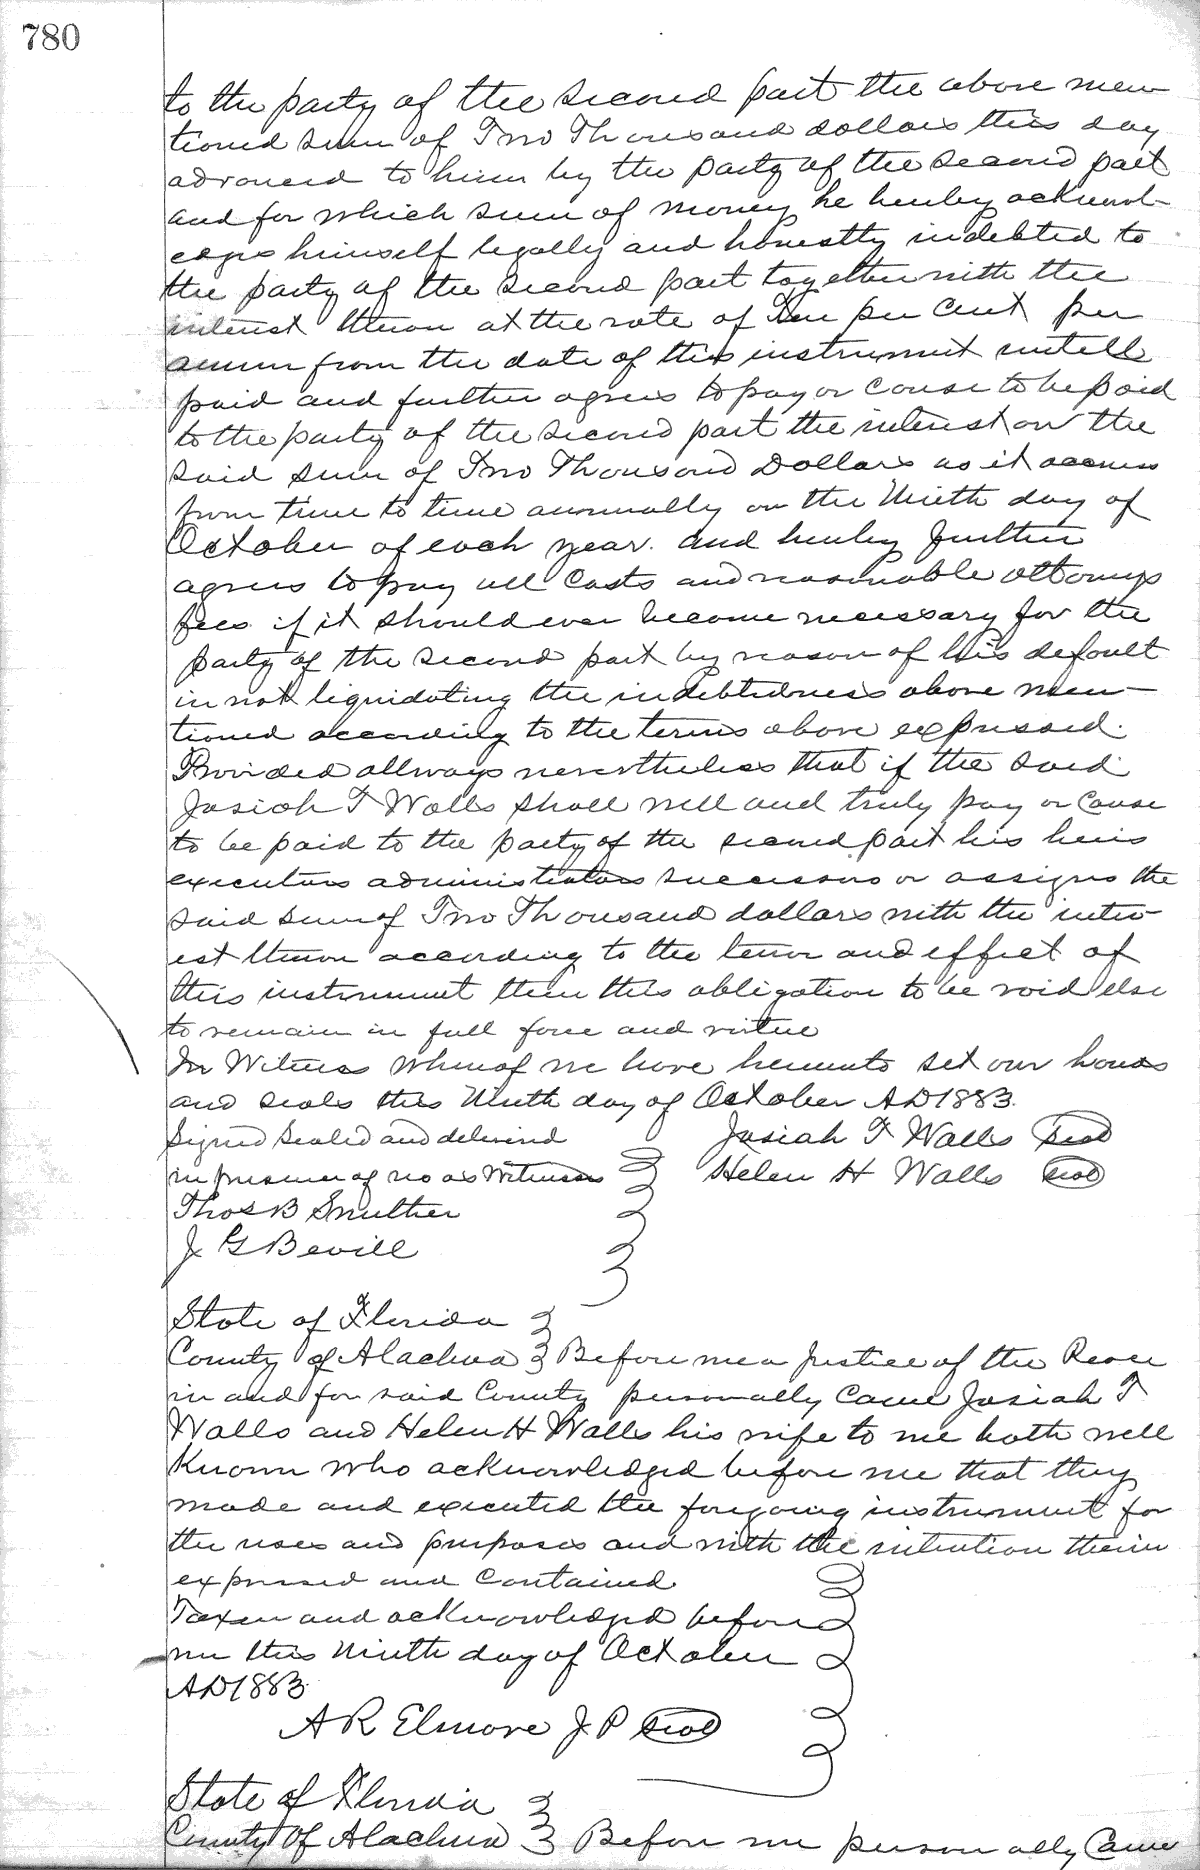 780
to the party of the second part the above men
tioned sum of Two Thousand dollars this day
advanced to him by the party of the second part
and for which sum of money he hereby acknowl-
edges himself legally and honestly indebted to
the party of the second part together with the
interest thereon at the rate of Ten per Cent per
annum from the date of this instrument untill
paid and further agrees to pay or cause to be paid
to the party of the second part the interest on the
said sum of Two Thousand Dollars as it accrues
from time to time annually on the Ninth day of
October of each year. and hereby further
agrees to pay all Costs and reasonable attorneys
fees if it should ever become necessary for the
party of the second part by reason of his default
in not liquidating the indebtedness above men-
tioned according to the terms above expressed.
Provided allways nevertheless that if the said
Josiah T Walls shall well and truly pay or Cause
to be paid to the party of the second part his heirs
executors administrators successors or assigns the
said sum of Two Thousand dollars with the inter-
est thereon according to the tenor and effect of
this instrument then this obligation to be void else
to remain in full force and virtue
In Witness Whereof we have hereunto set our hands
and seals this Ninth day of October AD 1883.
Signed Sealed and delivered
in presence of us as Witnesses
Josiah T Walls Seal
Helen H Walls Seal
Thos B Smither
J G Bevill
State of Florida
County of Alachua Before me a Justice of the Peace
in and for said County personally Came Josiah T
Walls and Helen H Walls his wife to me both well
Known who acknowledged before me that they
made and executed the foregoing instrument for
the uses and purposes and with the intention therein
expressed and Contained
Taken and acknowledged before
me this Ninth day of October
AD 1883
A R Elmore J P Seal
State of Florida
County Of Alachua Before me personally Came